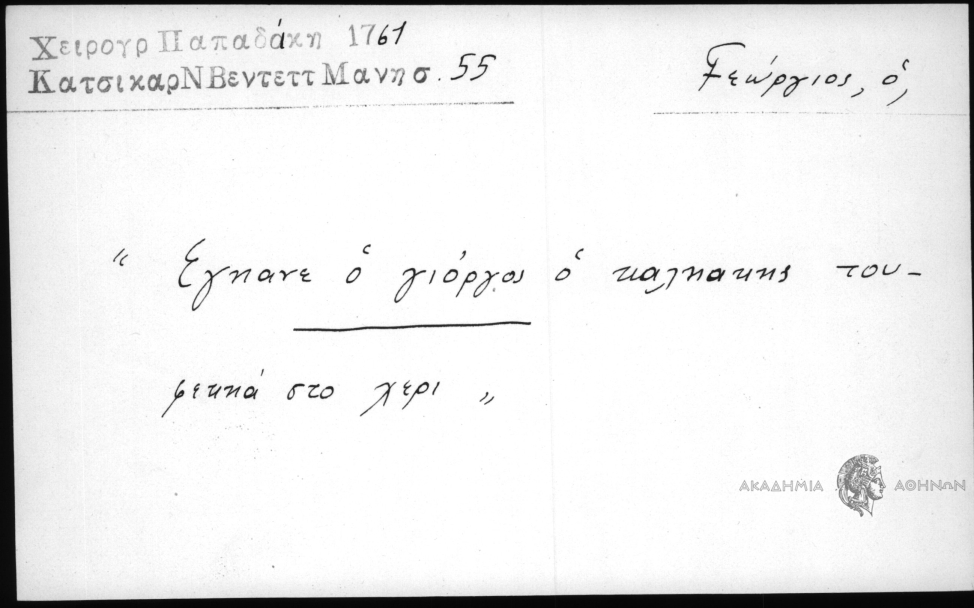 Χειρογρ Παπαδάκη 1761
ΚατσικαρΝΒεντεττΜανησ. 55
Γεώργιος, ὁ,
“ Εγηανε ὁ γιόργος ὁ καληακης του-
φεκηά στο χερι „
ΑΚΑΔΗΜΙΑ ΑΘΗΝΩΝ